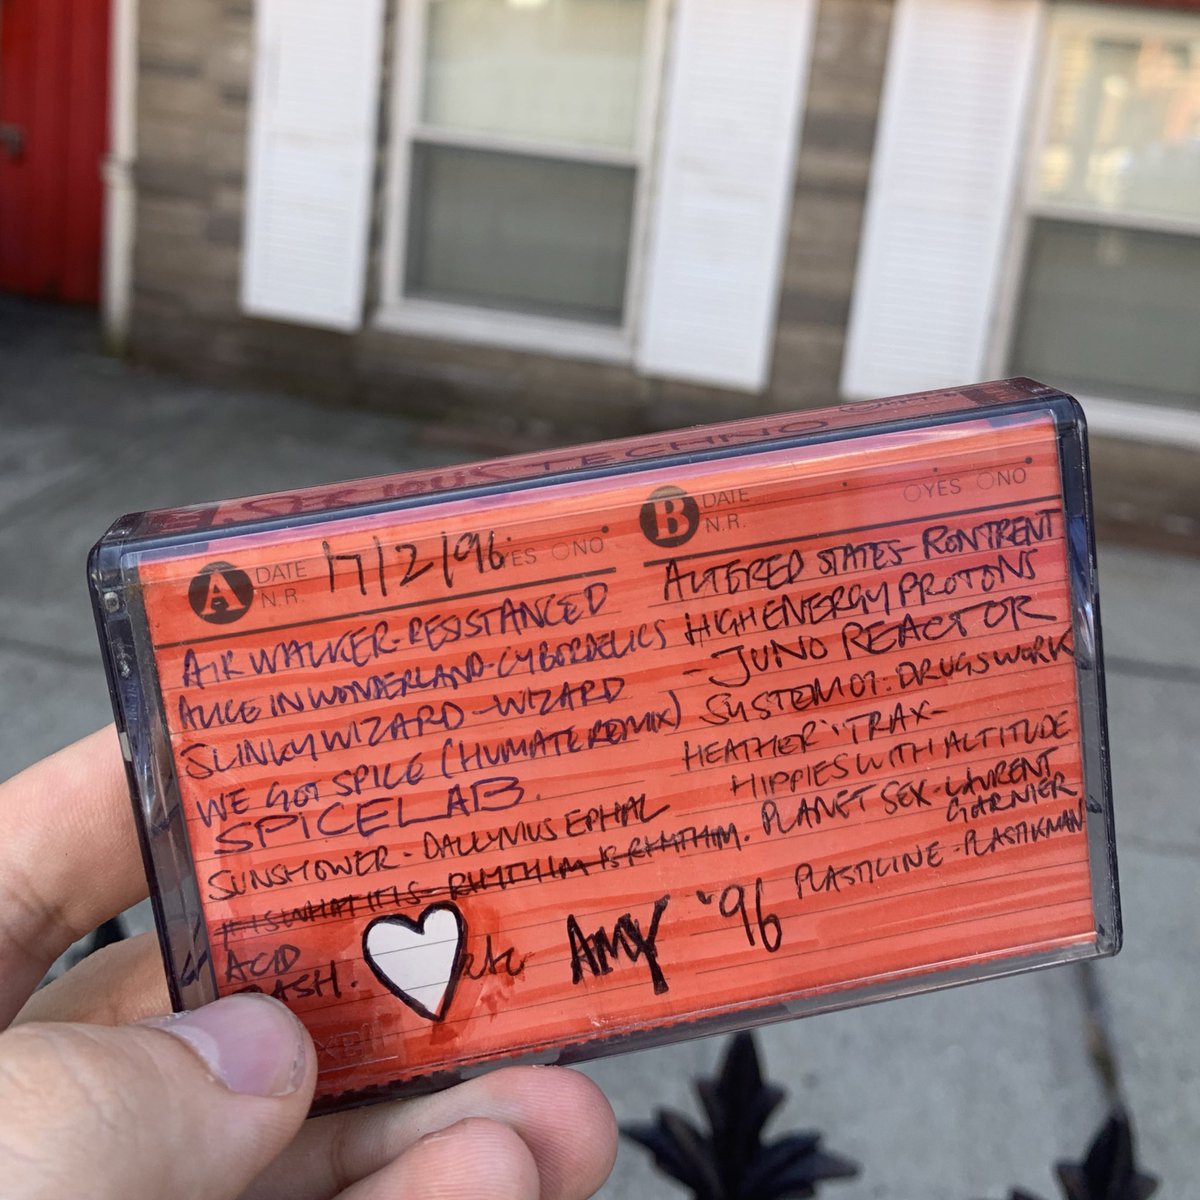 TECHNO
A DATE 17/2/96 YES NO
N.R.
AIRWALKER-RESISTANCED
ALICE IN WONDERLAND-CYBORDELICS
SLINKYWIZARD-WIZARD
WE GOT SPICE (HUMATE REMIX)
SPICELAB.
SUNSHOWER-DALLYNUS EPHAL
IF IS WHAT IT IS- RHTHIM IS RHTHIM.
ACID
♡ AMY '96
B DATE YES NO
N.R.
ALTERED STATES-RONTRENT
HIGH ENERGY PROTONS
-JUNO REACTOR
SYSTEM 01: DRUGS WORK
HEATHER 'TRAX-
HIPPIES WITH ALTITUDE
PLANET SEX-LAURENT
GARNIER
PLASTICINE-PLASTIKMAN